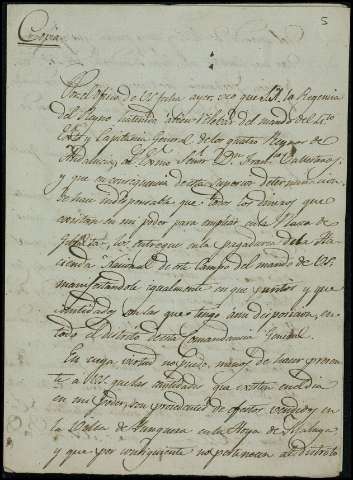 5
Copia
Por el oficio de VS. fecha ayer, veo que S.A. la Regencia
del Reyno ha tenido a bien del mando del 4.to
Exto y Capitania General de los quatro Reynos de
Andalucia, al Exmo Señor D.n Fran.co Ballesteros,
y que en consequencia de esta Superior determinacion
se hace indispensable que todos los dineros que
existan en mi poder para emplear en la Plaza de
los entregue en la pagaduria de la Ha-
cienda Nacional de este Campo del mando de VS.
manifestandole igualmente en que puntos y que
cantidades son las que tengo a mi disposicion, en
todo el distrito de esa Comandancia General.
En cuya virtud no puedo menos de hacer presen-
te a VS. que las cantidades que existen en el dia
en mi Poder, son procedentes de efectos vendidos en
la Villa de Yunquera en la Hoya de Malaga
y que por consiguiente no pertenecen al distrito